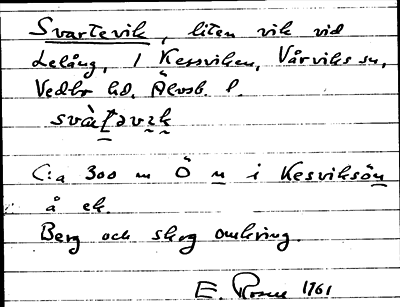 Svartevik, liten vik vid
Lelång, i Kesviken, Vårviks sn,
Vedbo hd. Älvsb. l.
C:a 300 m Ö n i Kesviksön
å ek.
Berg och skog omkring.
E. Rosen 1961